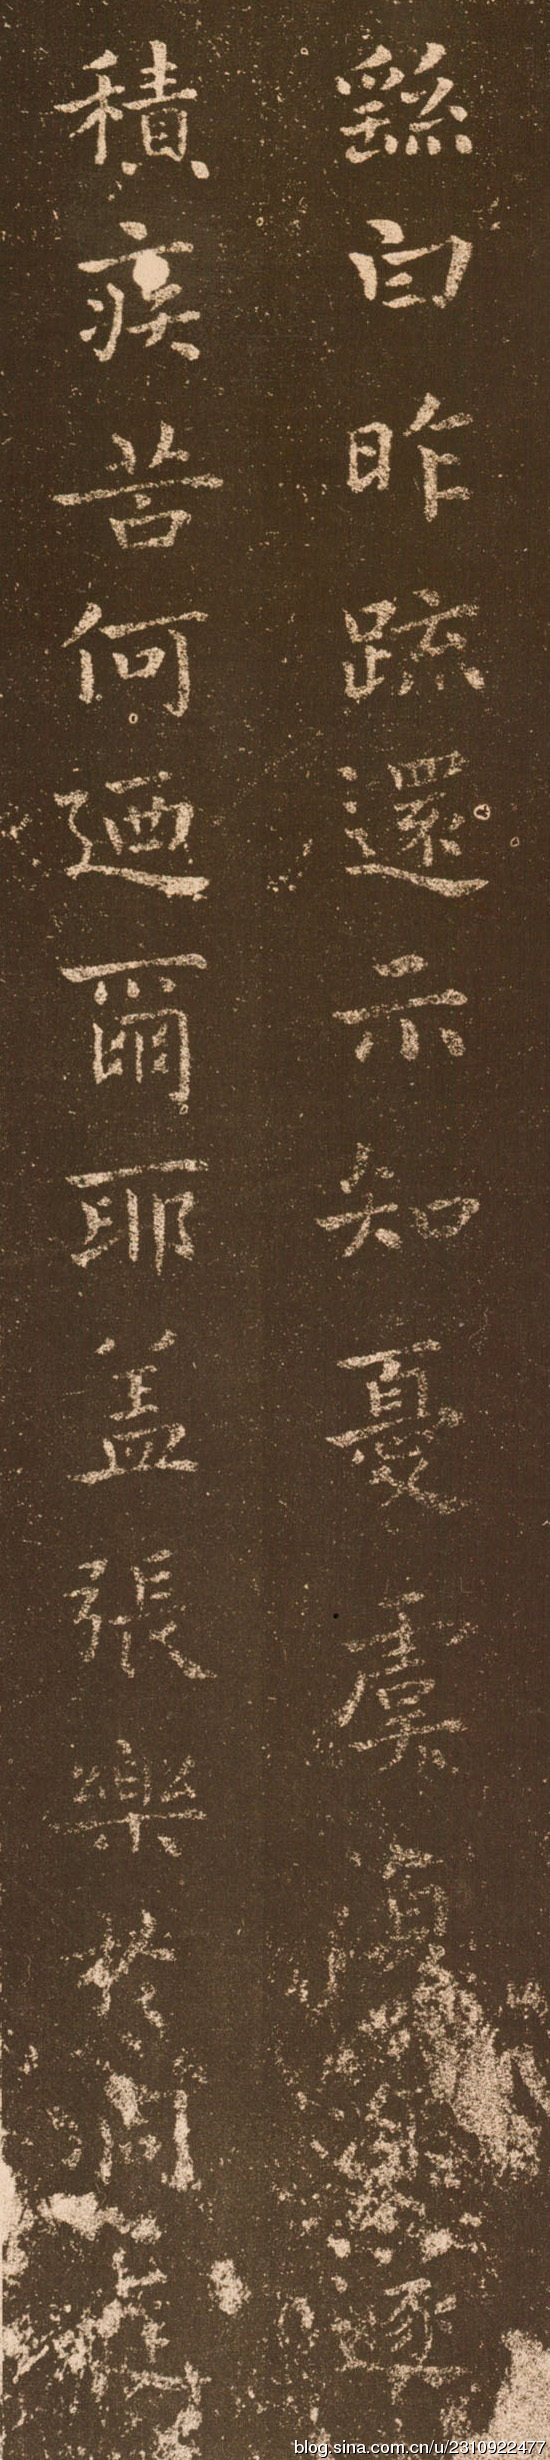 繇白昨疏還示知憂虞復遂
積疾苦何迺爾耶盖張樂於洞庭
blog.sina.com.cn/u/2310922477